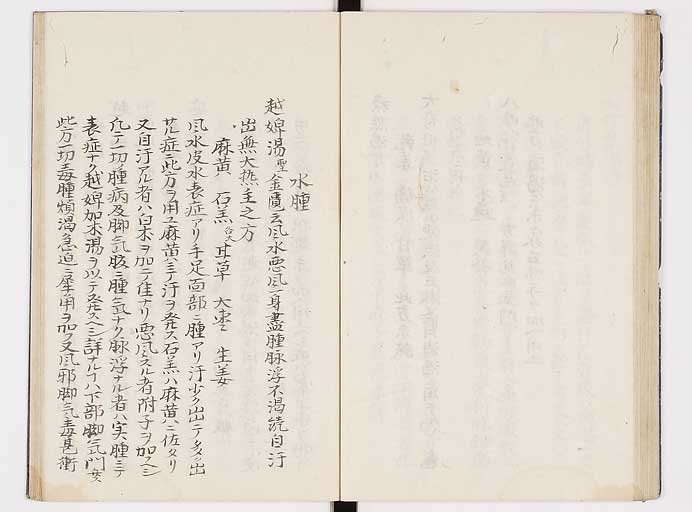 水腫
越婢湯 聖 金匱云風水悪風一身盡腫脉浮不渇続自汗
出無大熱主之方
麻黄 石羔 甘草 大枣 生姜
風水皮水表症アリ手足面部ニ腫アリ汗少ク出テ多ク出
ル症ニ此方ヲ用ユ麻黄ハ汗ヲ発ス石羔ハ麻黄ニ佐タリ
又自汗アル者ハ白朮ヲ加テ佳ナリ悪風スル者附子ヲ加スヘシ
凡テ一切ノ腫病及脚気 腫気ナク脉浮ナル者ハ実腫ニテ
表症ナク越婢加朮湯ヲ以テ発スヘシ詳ナルハ下部脚気門
此方一切毒腫煩渇急迫ニ犀角ヲ加フ又風邪脚気毒甚衝